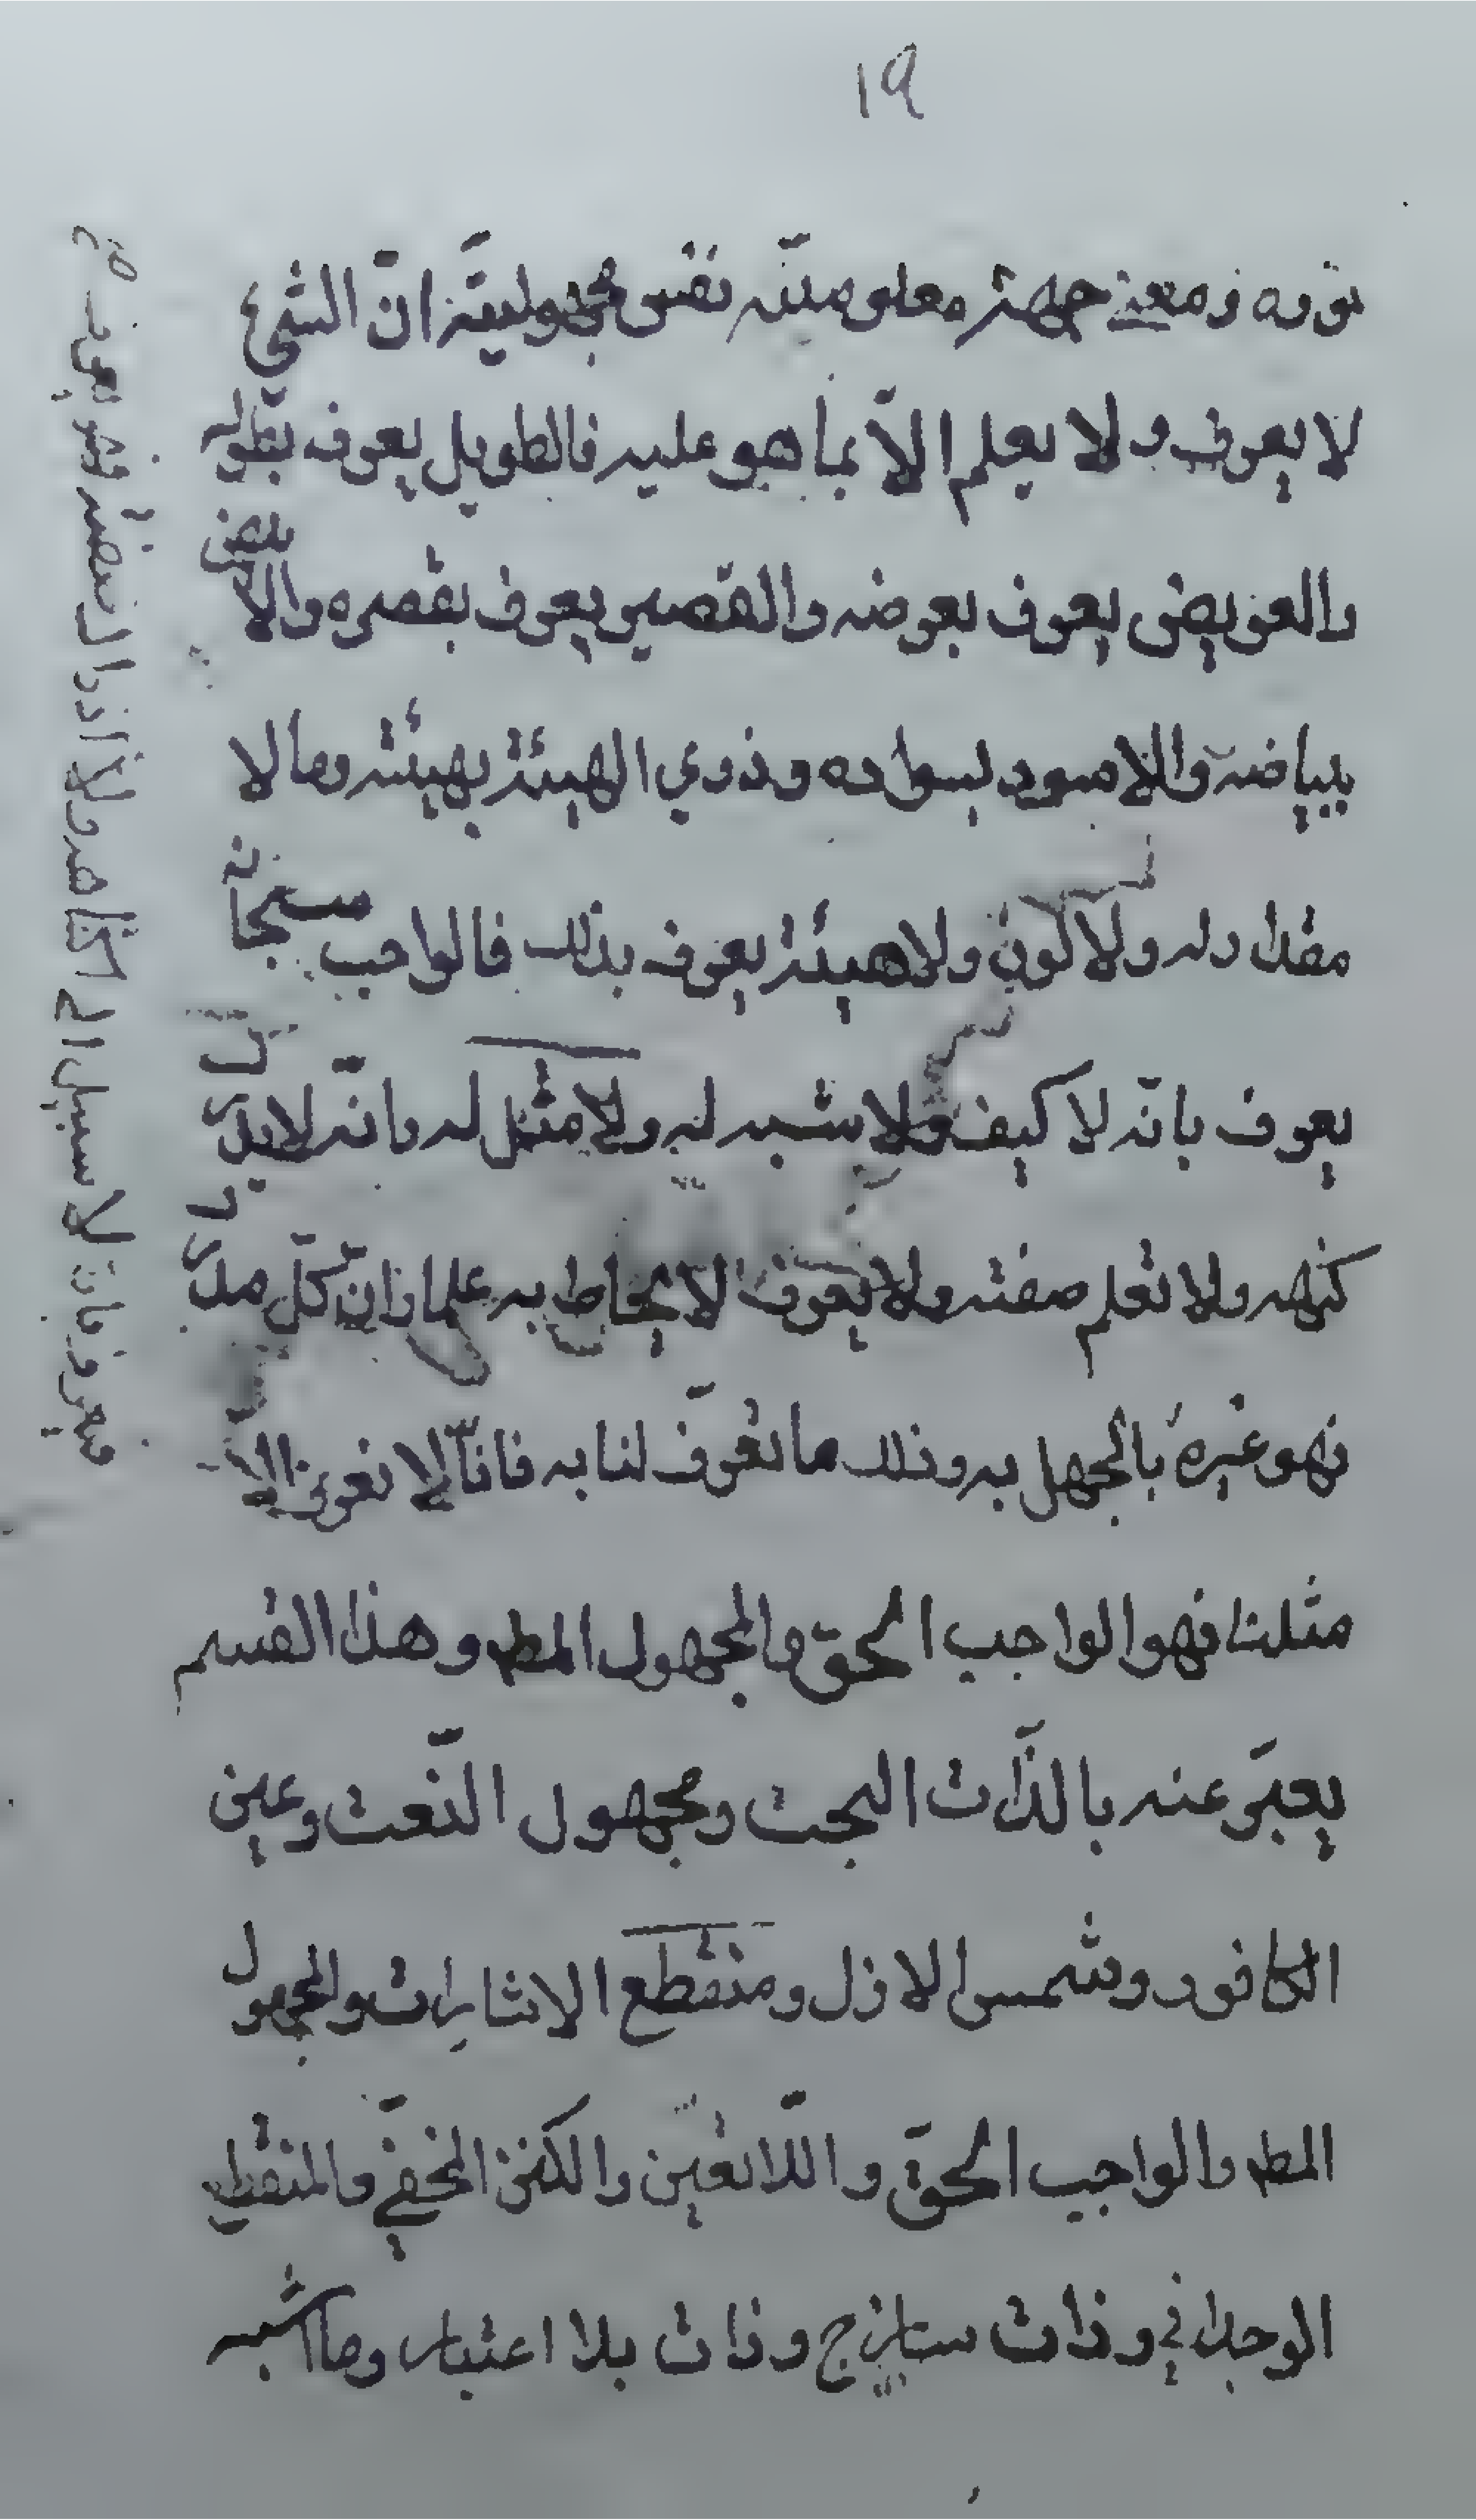 ١٩
نوره ومعنى جهة معلوميّته نفس مجهوليّته انّ الشيء
لا يعرف ولا يعلم الاّ بما هو عليه فالطويل يعرف بطوله
والعريض يعرف بعرضه والقصير يعرف بقصره والابيض
ببياضه والاسود بسواده وذوي الهيئة بهيئته وما لا
مقدار له ولا لون ولا هيئة يعرف بذلك فالواجب سبحانه
يعرف بانّه لا كيف ولا شبه له ولا مثل له وانّه لا يدرك
كنهه ولا تعلم صفته ولا يعرف لا يحاط به علما وان كلّ مدرك
فهو غيره بالجهل به وذلك ما تعرّف لنا به فانّا لا نعرف الاّ
مثلنا فهو الواجب الحق والمجهول المط وهذا القسم
يعبّر عنه بالذّات البحت ومجهول النّعت وعين
الكافور وشمس الازل ومنقطع الاشارات والمجهول
المط والواجب الحقّ واللّا تعيّن والكنز المخفيّ والمنقطع
الوجداني وذات ساذج وذات بلا اعتبار وما اشبه
فيعرف بان لا سبيل الى اكتناهه ولا ادراك صفته فهو يعرف